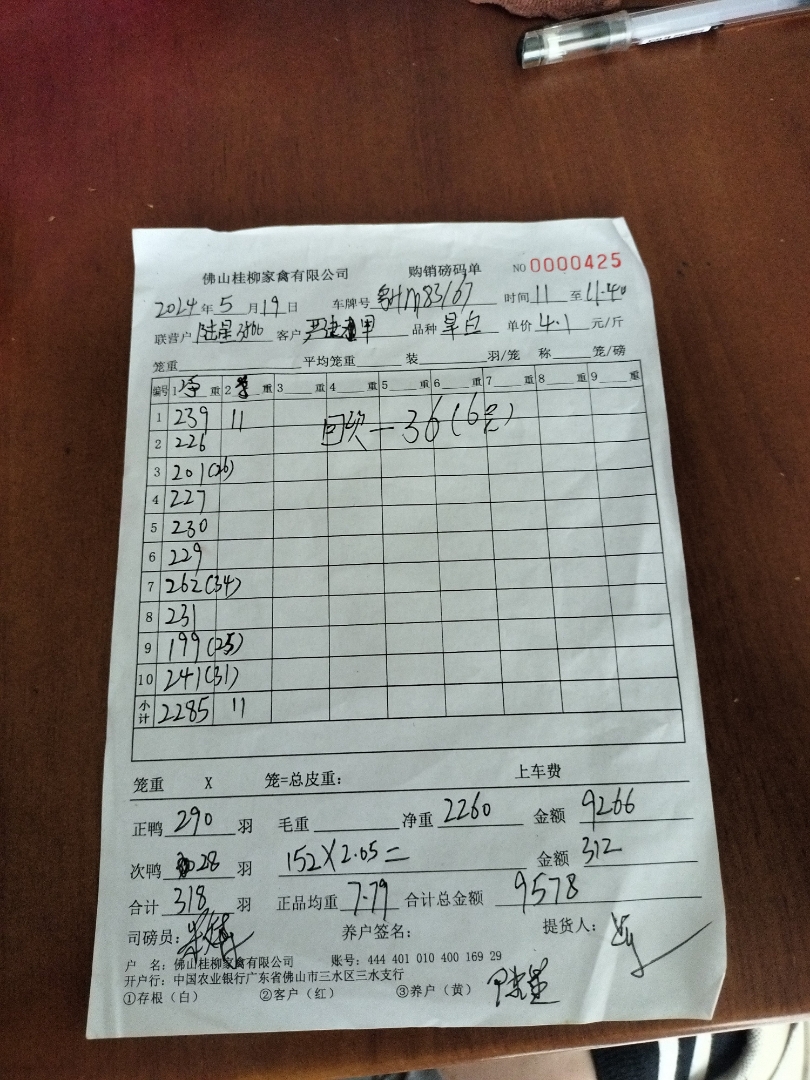 佛山桂柳家禽有限公司 购销磅码单 NO 0000425
2024年5月19日 车牌号 时间11至11.40
联营户 陆星 客户 品种 旱白 单价4.1元/斤
笼重 平均笼重 装 羽/笼 称 笼/磅
编号 1净重 2 重 3 重 4 重 5 重 6 重 7 重 8 重 9 重
1 239 11
2 226
回 一36(6只)
3 201(26)
4 227
5 230
6 229
7 262(34)
8 231
9 199(25)
10 241(31)
小计 2285 11
笼重 X 笼=总皮重: 上车费
正鸭 290 羽 毛重 净重 2260 金额 9266
次鸭 28 羽 152X2.05= 金额 312
合计 318 羽 正品均重 7.79 合计总金额 9578
司磅员: 养户签名: 提货人:
户 名: 佛山桂柳家禽有限公司 账号: 444 401 010 400 169 29
开户行: 中国农业银行广东省佛山市三水区三水支行
①存根(白) ②客户(红) ③养户(黄)